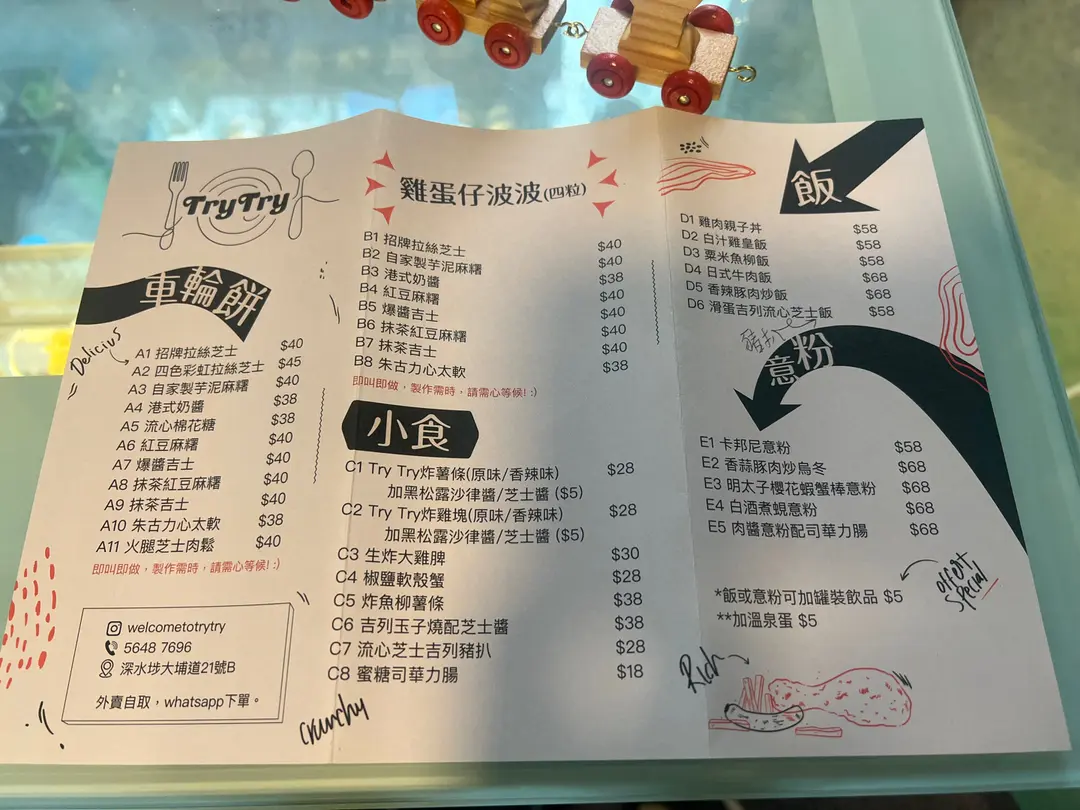 TryTry
車輪餅
Delicius
A1 招牌拉絲芝士 $40
A2 四色彩虹拉絲芝士 $45
A3 自家製芋泥麻糬 $40
A4 港式奶醬 $38
A5 流心棉花糖 $38
A6 紅豆麻糬 $40
A7 爆醬吉士 $40
A8 抹茶紅豆麻糬 $40
A9 抹茶吉士 $40
A10 朱古力心太軟 $38
A11 火腿芝士肉鬆 $40
即叫即做，製作需時，請需心等候! :)
welcometotrytry
5648 7696
深水埗大埔道21號B
外賣自取，whatsapp下單。
雞蛋仔波波(四粒)
B1 招牌拉絲芝士 $40
B2 自家製芋泥麻糬 $40
B3 港式奶醬 $38
B4 紅豆麻糬 $40
B5 爆醬吉士 $40
B6 抹茶紅豆麻糬 $40
B7 抹茶吉士 $40
B8 朱古力心太軟 $38
即叫即做，製作需時，請需心等候! :)
小食
C1 Try Try炸薯條(原味/香辣味) $28
加黑松露沙律醬/芝士醬 ($5)
C2 Try Try炸雞塊(原味/香辣味) $28
加黑松露沙律醬/芝士醬 ($5)
C3 生炸大雞脾 $30
C4 椒鹽軟殼蟹 $28
C5 炸魚柳薯條 $38
C6 吉列玉子燒配芝士醬 $38
C7 流心芝士吉列豬扒 $28
C8 蜜糖司華力腸 $18
crunchy
飯
D1 雞肉親子丼 $58
D2 白汁雞皇飯 $58
D3 粟米魚柳飯 $58
D4 日式牛肉飯 $68
D5 香辣豚肉炒飯 $68
D6 滑蛋吉列流心芝士飯 $58
意粉
E1 卡邦尼意粉 $58
E2 香蒜豚肉炒烏冬 $68
E3 明太子櫻花蝦蟹棒意粉 $68
E4 白酒煮蜆意粉 $68
E5 肉醬意粉配司華力腸 $68
*飯或意粉可加罐裝飲品 $5
**加溫泉蛋 $5
offert
special
Rich